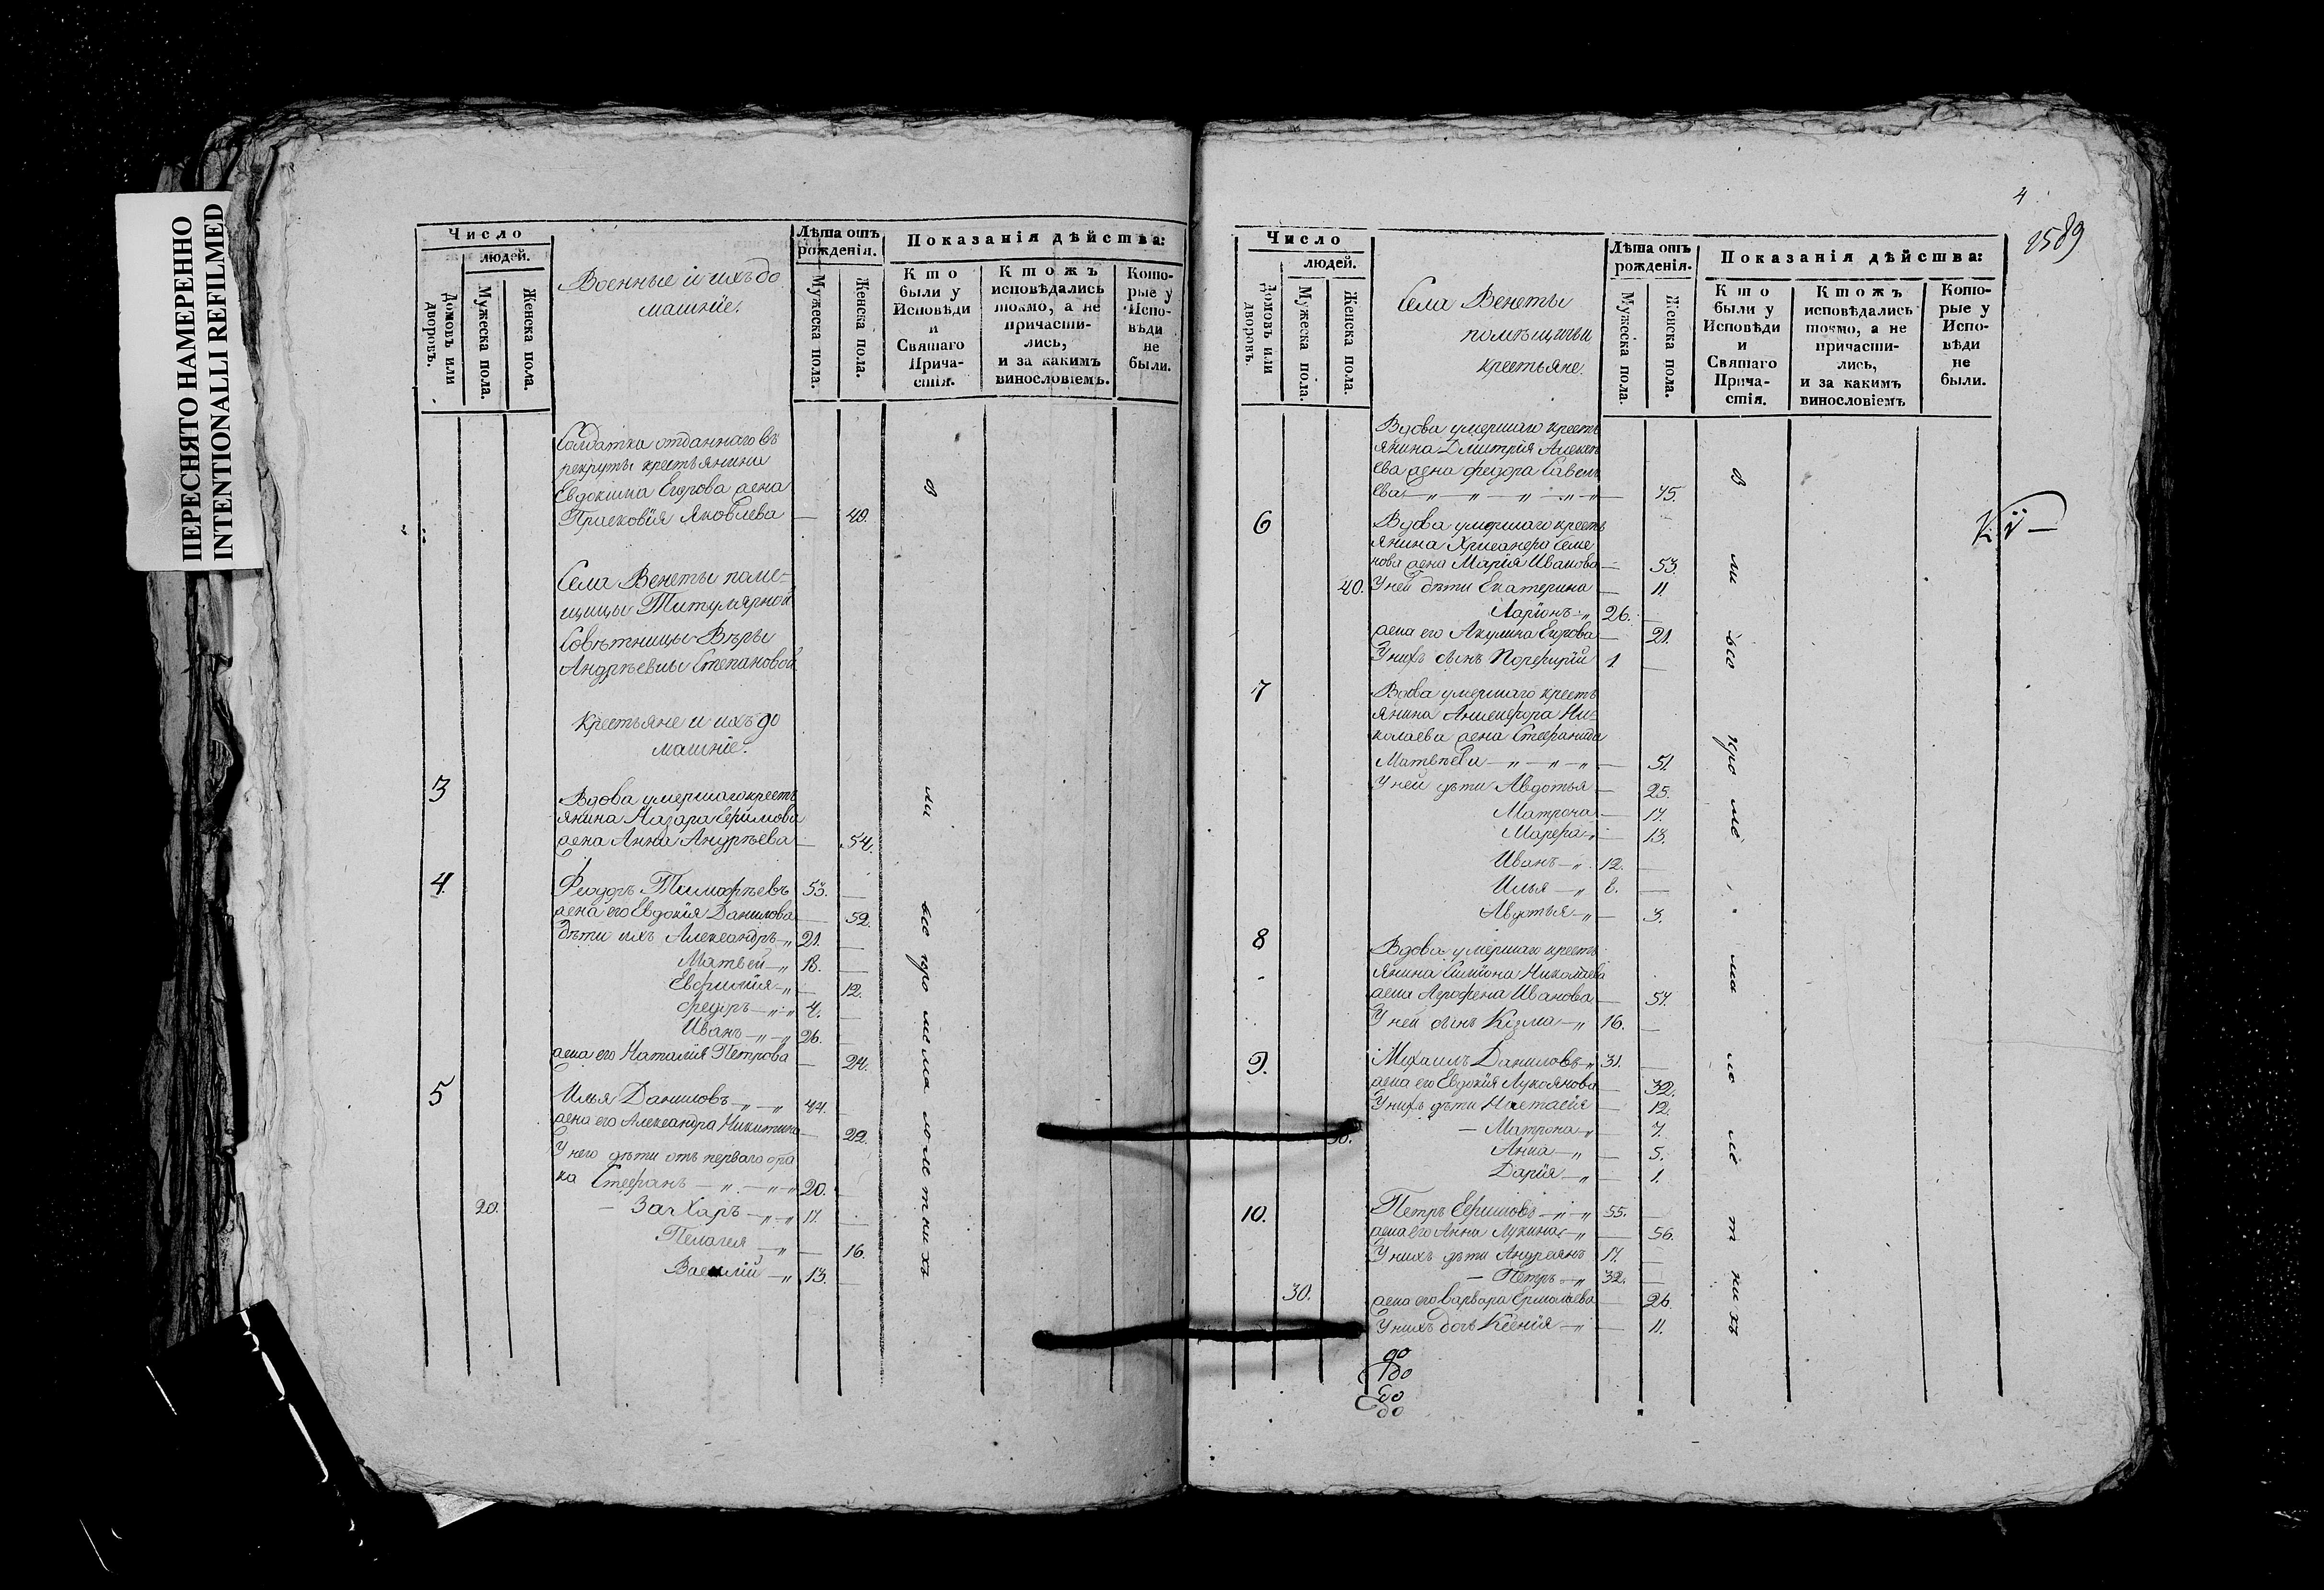 ПЕРЕСНЯТО НАМЕРЕННО
INTENTIONALLI REFILMED
Число
людей.
Домовъ или дворовъ.
Мужеска пола.
Женска пола.
Военные и ихъ до
машніе.
Лѣта отъ
рожденія.
Мужеска пола.
Женска пола.
Показанія дѣйства:
Кто
были у
Исповѣди
и
Святаго
Прича-
стія.
Ктожъ
исповѣдались
токмо, а не
причасти-
лись,
и за какимъ
винословіемъ.
Кото-
рые у
Испо-
вѣди
не
были.
Солдатка отданнаго въ
рекруты крестьянина
Евдокима Егорова жена
Прасковія Яковлева — 49.
Села Венеты поме-
щицы Титулярной
Совѣтницы Вѣры
Андрѣевны Степановой
Крестьяне и ихъ до
машніе.
3 Вдова умершаго кресть
янина Назара Ефимова
жена Анна Андрѣева — 54.
4. Феодоръ Тимофѣевъ 53. —
жена его Евдокія Данилова — 52.
дѣти ихъ Александръ „ 21. —
Матвей — „ 18. —
Евфимія — „ — 12.
Федоръ — „ — „ 4. —
Иванъ — „ — „ 26. —
жена его Наталія Петрова — 24.
5 Илья Даниловъ — „ — „ 44. —
жена его Александра Никитина — 29.
У него дѣти отъ перваго бра
ка Стефанъ — „ — „ — „ 20. —
20. — Захаръ — „ — „ 17. —
Пелагея — „ — 16.
Василій — „ 13. —
в
ли
всо
кро
ме
ма
ло
ле
т
ни
хъ
4
2589
Число
людей.
Домовъ или дворовъ.
Мужеска пола.
Женска пола.
Села Венеты
помѣщичьи
крестьяне.
Лѣта отъ
рожденія.
Мужеска пола.
Женска пола.
Показанія дѣйства:
Кто
были у
Исповѣди
и
Святаго
Прича-
стія.
Ктожъ
исповѣдались
токмо, а не
причасти-
лись,
и за какимъ
винословіемъ
Кото-
рые у
Испо-
вѣди
не
были.
Вдова умершаго кресть
янина Дмитрія Алексѣ
ева жена Федора Савель
ева — „ — „ — „ — „ — 45.
6 Вдова умершаго кресть
янина Семе
нова жена Марія Иванова — 53.
40. У ней дѣти Екатерина — 11
Ларіонъ — „ 26. —
жена его Акулина Егорова — 21.
У нихъ сынъ Порфирій 1. —
7 Вдова умершаго кресть
янина Анисифора Ни-
колаева жена Стефанида
Матвѣева — „ — „ — „ — 51.
У ней дѣти Авдотья — 25.
Матрона — 17.
Марфа — „ — 13.
Иванъ — „ 12. —
Илья — „ 8. —
Авдотья — „ — 3.
8 Вдова умершаго кресть
янина Симіона Николаева
жена Агрофена Иванова — 57.
У ней сынъ Козма — „ 16. —
9. Михаилъ Даниловъ — „ 31. —
жена его Евдокія Лукоянова — 32.
У нихъ дѣти Настасія — 12.
— Матрона „ — 7.
Анна — „ — 5.
Дарія — „ — 1.
10. Петръ Ефимовъ — „ — „ 55. —
жена его Анна Лукина — „ — 56.
У нихъ дѣти Андреянъ 17. —
— Петръ — „ 32. —
30. жена его Варвара Ермолаева — 26
У нихъ дочь Ксенія — „ — 11.
в
ли
всо
кро
ме
ма
ло
ле
т
ни
хъ
до
до
до
до